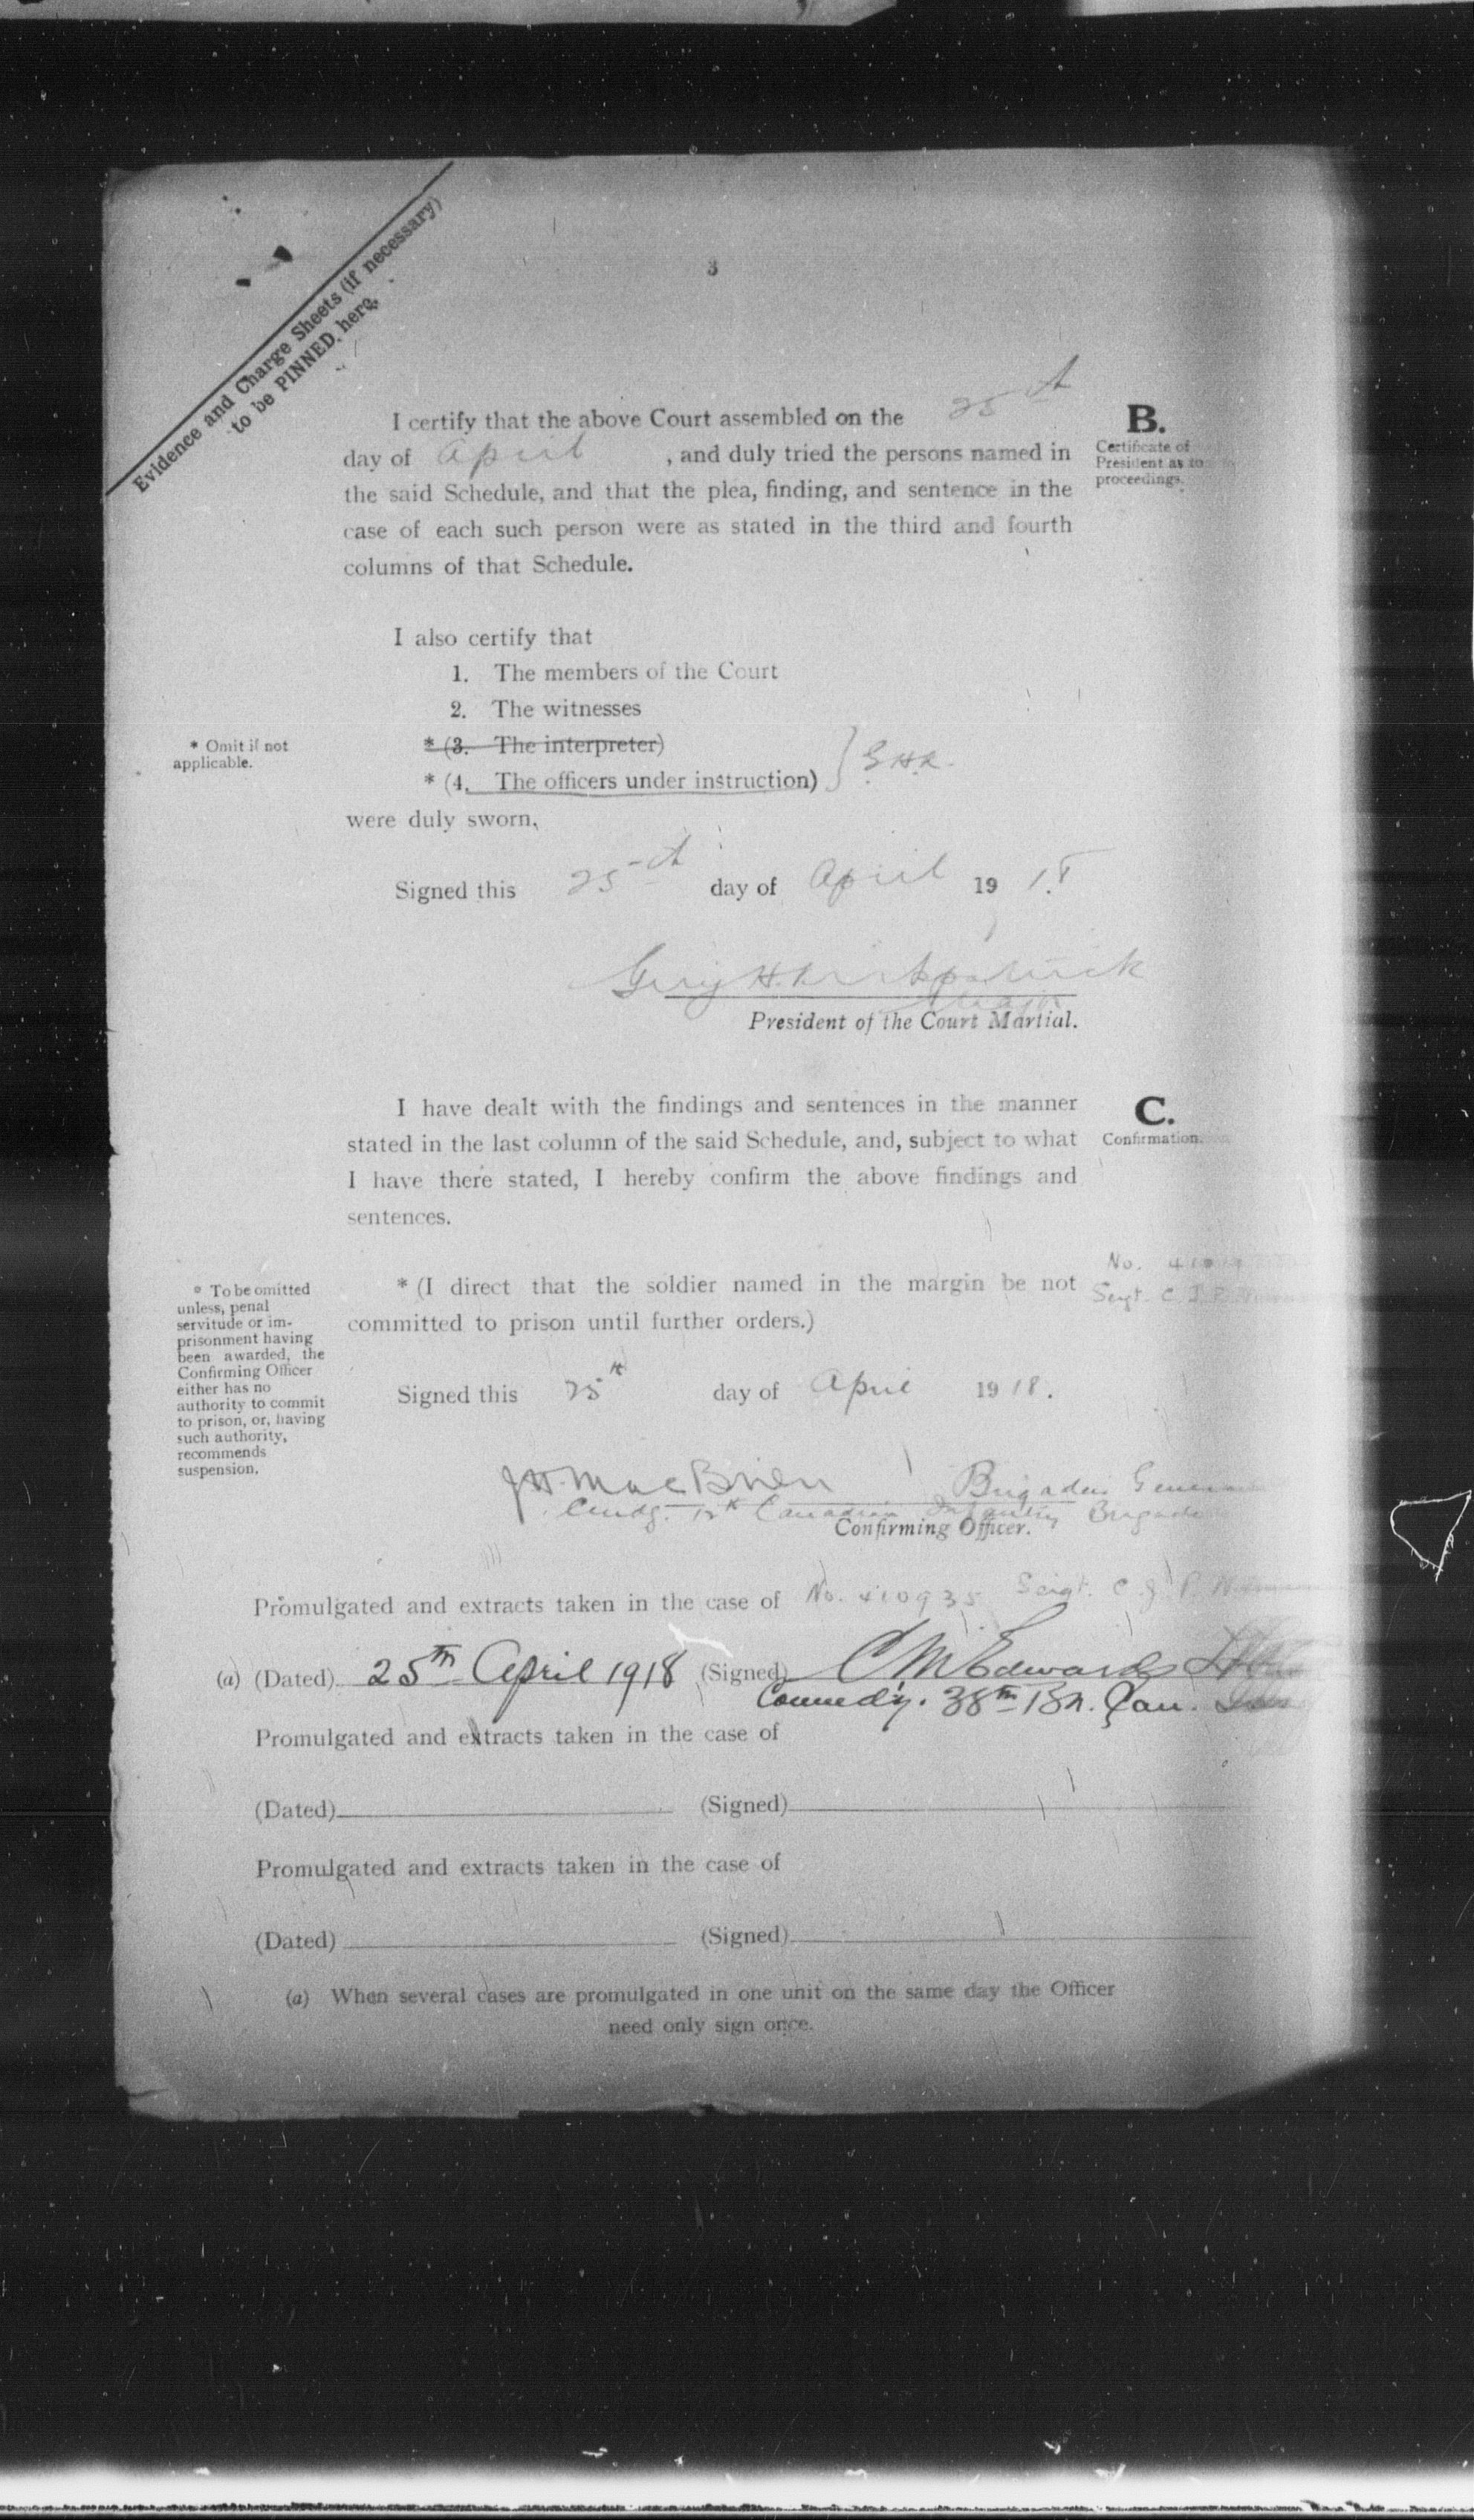 Evidence and Charge Sheets (if necessary)
to be PINNED here.
3
I certify that the above Court assembled on the 25th
day of April , and duly tried the persons named in
the said Schedule, and that the plea, finding, and sentence in the
case of each such person were as stated in the third and fourth
columns of that Schedule.
B.
Certificate of
President as to
proceedings.
I also certify that
1. The members of the Court
2. The witnesses
* (3. The interpreter)
* (4. The officers under instruction) } G.H.K.
* Omit if not
applicable.
were duly sworn.
Signed this 25th day of April 19 18
Guy H. Kirkpatrick
Major
President of the Court Martial.
I have dealt with the findings and sentences in the manner
stated in the last column of the said Schedule, and, subject to what
I have there stated, I hereby confirm the above findings and
sentences.
C.
Confirmation.
* (I direct that the soldier named in the margin be not
committed to prison until further orders.)
No.
Sergt. C. J. P.
* To be omitted
unless, penal
servitude or im-
prisonment having
been awarded, the
Confirming Officer
either has no
authority to commit
to prison, or, having
such authority,
recommends
suspension.
Signed this 25th day of April 1918.
J H. MacBrien Brigadier General
Cmdg. 12th Canadian Infantry Brigade
Confirming Officer.
Promulgated and extracts taken in the case of No. 410935 Sergt. C. J. P.
(a) (Dated) 25th April 1918 (Signed) C M Edwards
Commd'g. 38th Bn. Can.
Promulgated and extracts taken in the case of
(Dated) (Signed)
Promulgated and extracts taken in the case of
(Dated) (Signed)
(a) When several cases are promulgated in one unit on the same day the Officer
need only sign once.